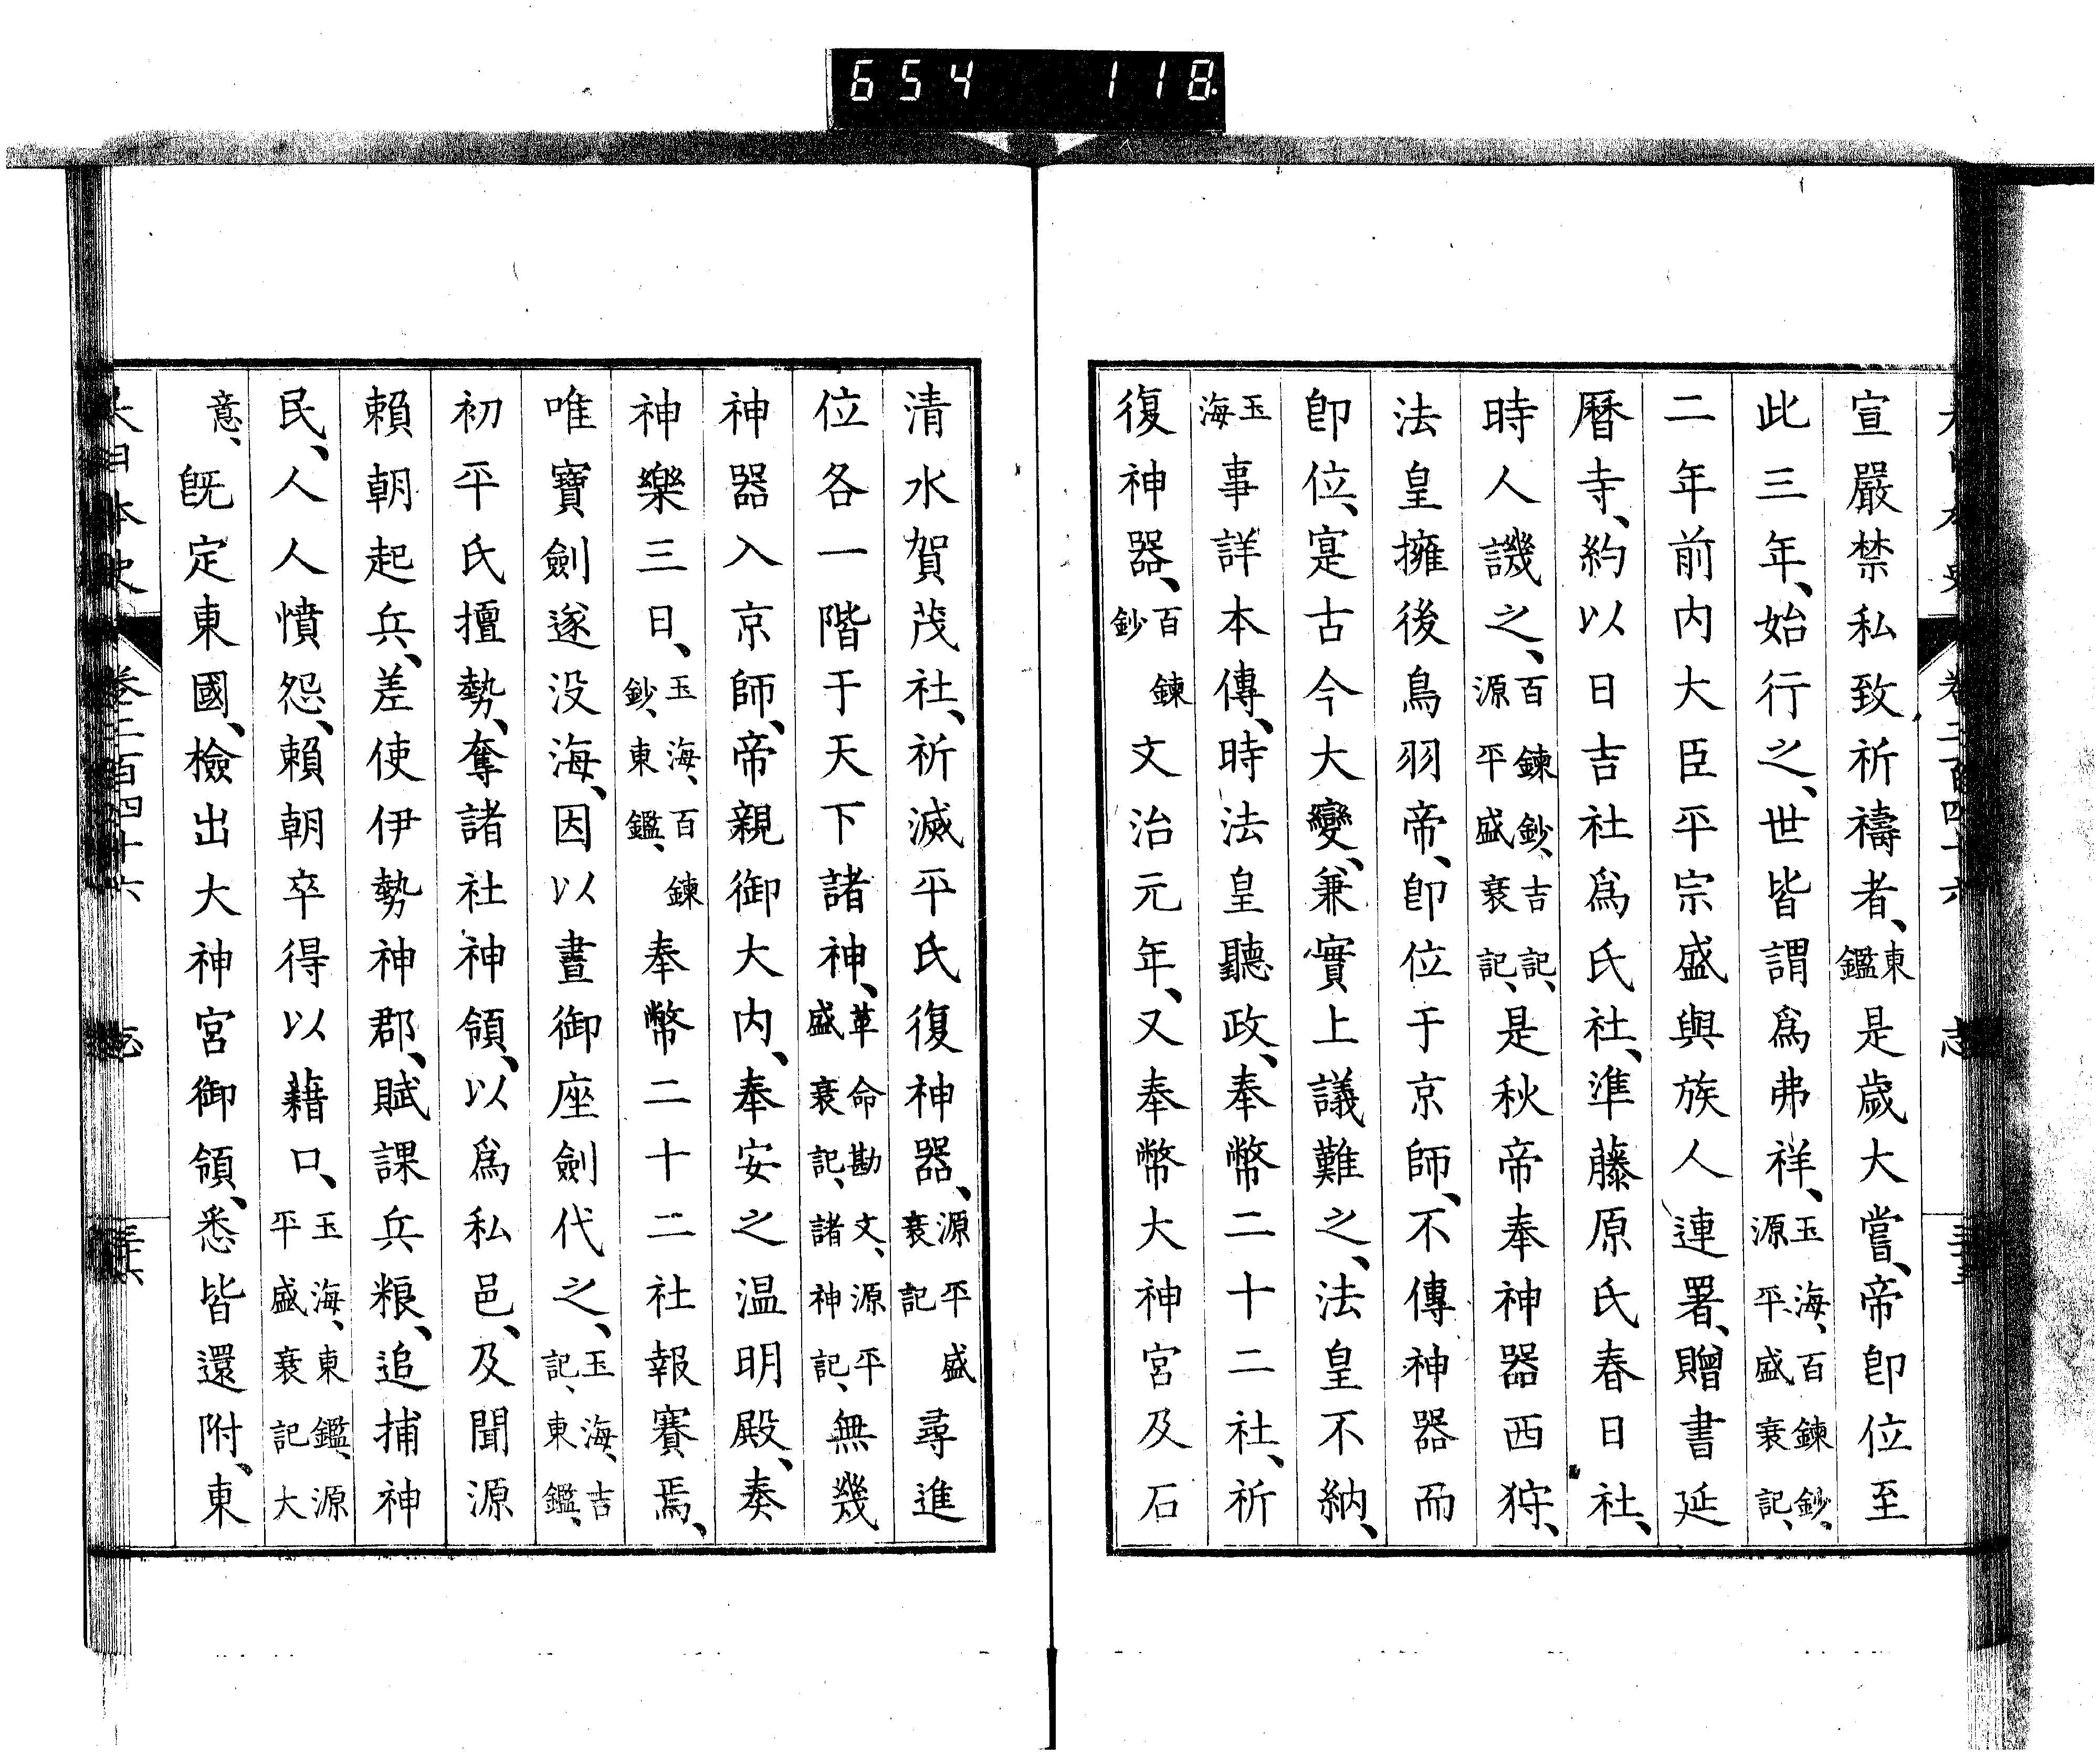 654 118
宣嚴禁私致祈禱者、東鑑是歲大嘗、帝卽位至
此三年、始行之、世皆謂爲弗祥、玉海、百鍊鈔、源平盛衰記、
二年前内大臣平宗盛與族人連署、贈書延
曆寺、約以日吉社爲氏社、準藤原氏春日社、
時人譏之、百鍊鈔、吉記、源平盛衰記、是秋帝奉神器西狩、
法皇擁後鳥羽帝、卽位于京師、不傳神器而
卽位、寔古今大變、兼實上議難之、法皇不納、
玉海事詳本傳、時法皇聽政、奉幣二十二社、祈
復神器、百鍊鈔文治元年、又奉幣大神宮及石
清水賀茂社、祈滅平氏復神器、源平盛衰記尋進
位各一階于天下諸神、革命勘文、源平盛衰記、諸神記、無幾
神器入京師、帝親御大内、奉安之温明殿、奏
神樂三日、玉海、百鍊鈔、東鑑、奉幣二十二社報賽焉、
唯寶劍遂没海、因以晝御座劍代之、玉海、吉記、東鑑、
初平氏擅勢、奪諸社神領、以爲私邑、及聞源
賴朝起兵、差使伊勢神郡、賦課兵粮、追捕神
民、人人憤怨、賴朝卒得以藉口、玉海、東鑑、源平盛衰記大
意、旣定東國、檢出大神宮御領、悉皆還附、東
大日本史 卷二百四十六 志